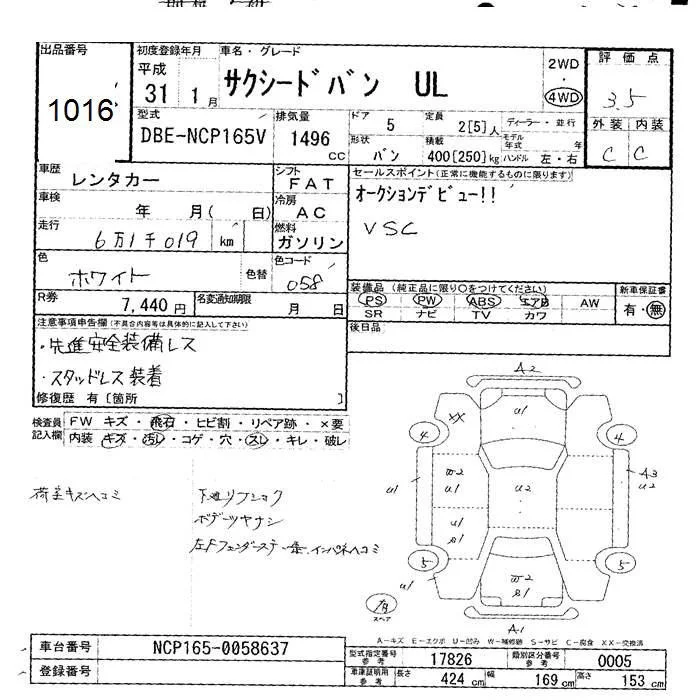 出品番号 初度登録年月 車名・グレード 評価点
1016 平成 31 1月 サクシードバン UL 2WD ・ 4WD 3.5
型式 排気量 ドア 5 定員 2[5]人 ディーラー・並行 外装 内装
DBE-NCP165V 1496 cc 形状 バン 積載 400[250]kg モデル年式 年 ハンドル 左・右 C C
車歴 レンタカー シフト FAT セールスポイント(正常に機能するものに限ります)
車検 年 月( 日) 冷房 AC オークションデビュー!!
走行 6万1千019 km 燃料 ガソリン VSC
色 ホワイト 色替 色コード 058
装備品 (純正品に限り○をつけてください) 新車保証書
R券 7,440円 名変通知期限 月 日 PS PW ABS エアB AW 有・無
SR ナビ TV カワ
注意事項申告欄(不具合内容等は具体的に記入して下さい) 後日品
・先進安全装備レス
・スタッドレス装着
修復歴 有[箇所 ]
検査員記入欄 FW キズ・飛石・ヒビ割・リペア跡・×要
内装 キズ・汚レ・コゲ・穴・スレ・キレ・破レ
荷室キズヘコミ
ボデーツヤナシ
A2
U1
XX
4 4
W2 U1 U2 A3 U2
U1
U1 S1
5 5
U1
W2 S1
有 スペア
A1
A-キズ E-エクボ U-凹み W-補修跡 S-サビ C-腐食 XX-交換済
車台番号 NCP165-0058637 型式指定番号 参考 17826 類別区分番号 参考 0005
登録番号 車庫証明用 参考 長さ 424 cm 幅 169 cm 高さ 153 cm